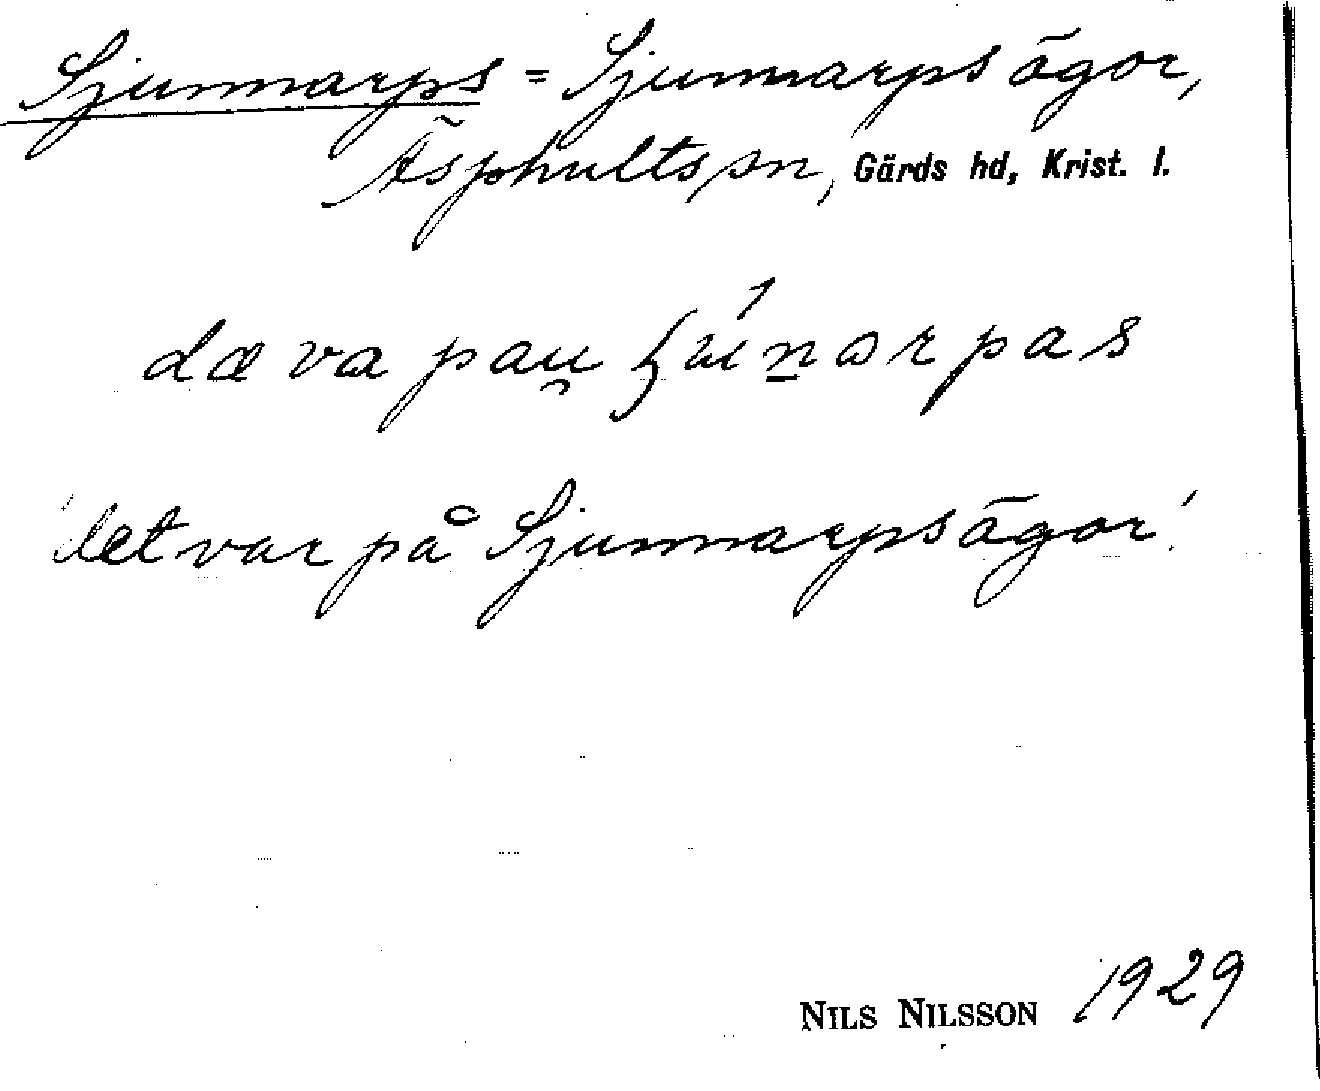 Sjunnarps = Sjunnarps ägor,
Äsphults sn, Gärds hd, Krist. l.
dæ va pau̯ ɧúṉarpas
'det var på Sjunnarps ägor'.
NILS NILSSON 1929